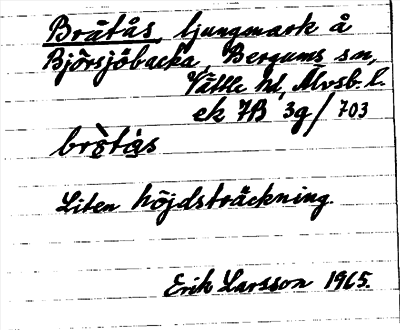 Bråtås, ljungmark å
Björsjöbacka, Bergums sn,
Vättle hd, Älvsb. l.
ek 7B 3g/703
brò̤tá̤s
Liten höjdsträckning.
Erik Larsson 1965.